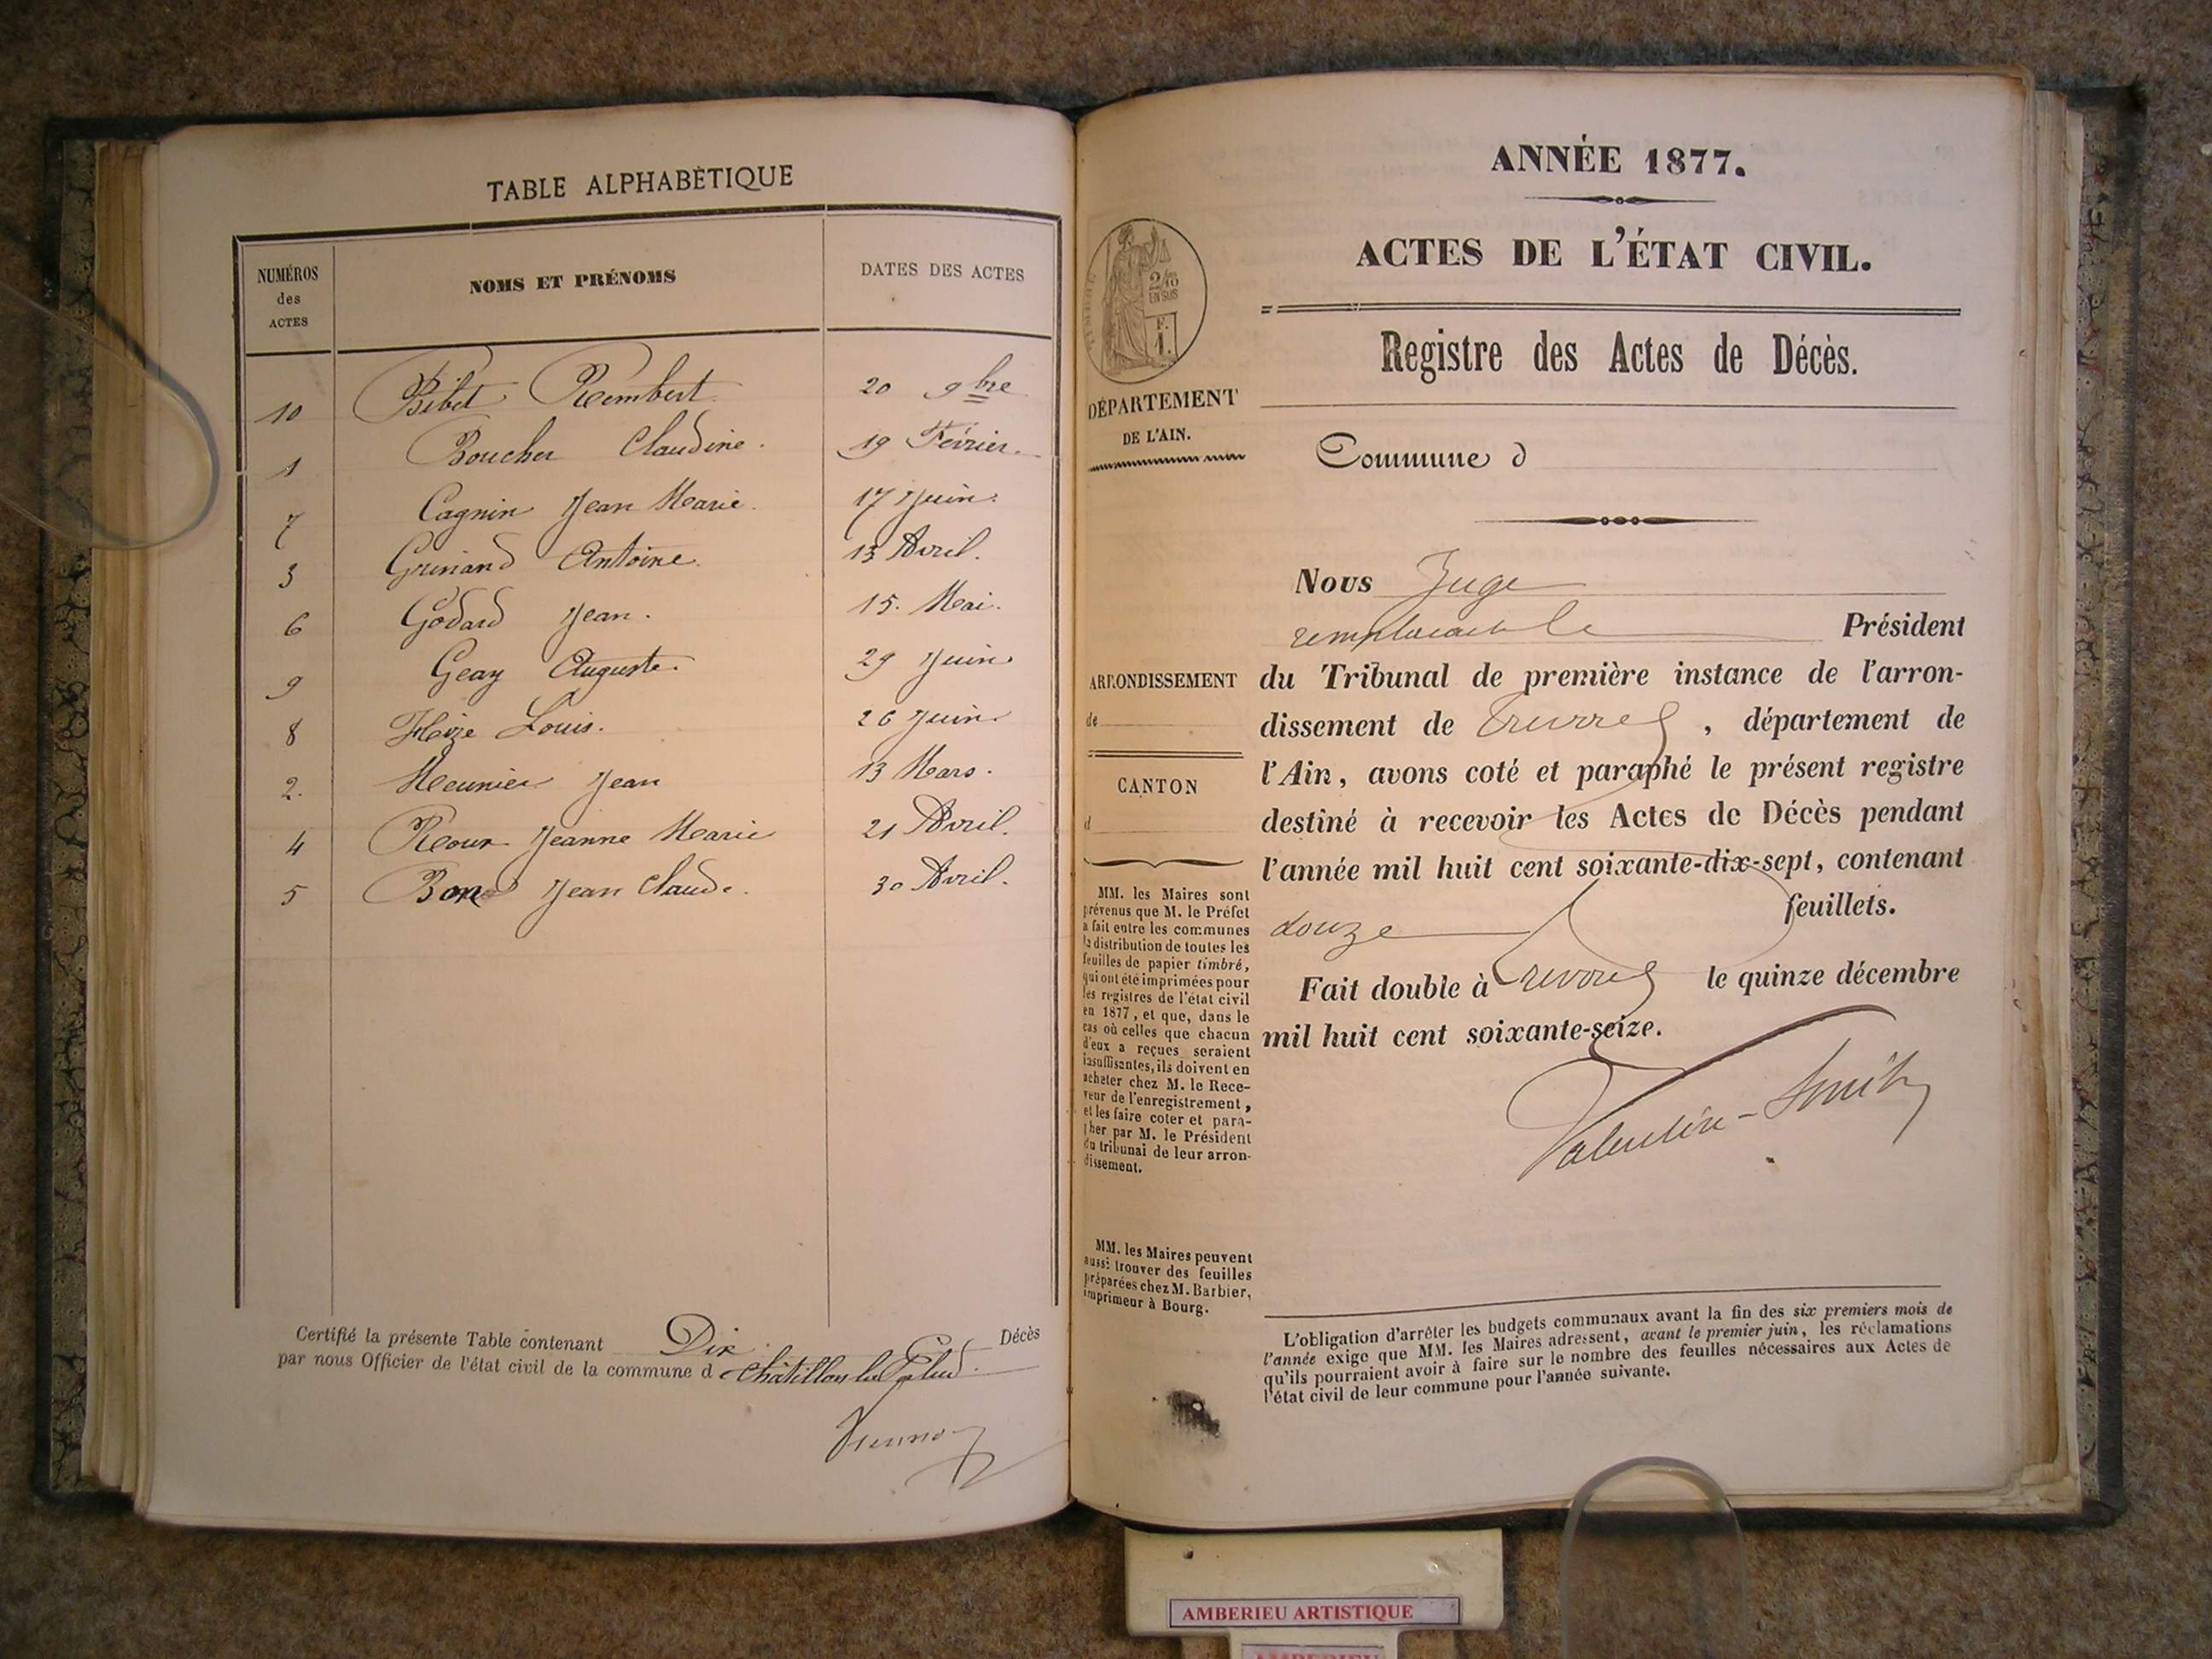 TABLE ALPHABÈTIQUE
NUMÉROS
des
ACTES
NOMS ET PRÉNOMS
DATES DES ACTES
10 Bibet Rembert 20 9bre
1 Boucher Claudine. 19 Février.
7 Cagnin Jean Marie. 17 Juin.
3 Grinand Antoine. 13 Avril.
6 Godard Jean. 15. Mai.
9 Geay Auguste. 29 Juin
8 Louis. 26 Juin.
2. Meunier Jean 13 Mars.
4 Roux Jeanne Marie 21 Avril.
5 Jean Claude. 30 Avril.
Certifié la présente Table contenant Dix Décès
par nous Officier de l'état civil de la commune d Châtillon la Palud.
ANNÉE 1877.
ACTES DE L'ÉTAT CIVIL.
Registre des Actes de Décès.
2/10
EN SUS
F.
1.
DÉPARTEMENT
DE L'AIN.
Commune d
ARRONDISSEMENT
de
CANTON
d
MM. les Maires sont
prévenus que M. le Préfet
a fait entre les communes
la distribution de toutes les
feuilles de papier timbré,
qui ont été imprimées pour
les registres de l'état civil
en 1877, et que, dans le
cas où celles que chacun
d'eux a reçues seraient
insuffisantes, ils doivent en
acheter chez M. le Rece-
veur de l'enregistrement,
et les faire coter et para-
pher par M. le Président
du tribunal de leur arron-
dissement.
MM. les Maires peuvent
aussi trouver des feuilles
préparées chez M. Barbier,
imprimeur à Bourg.
Nous Juge
remplaçant le Président
du Tribunal de première instance de l'arron-
dissement de Trévoux, département de
l'Ain, avons coté et paraphé le présent registre
destiné à recevoir les Actes de Décès pendant
l'année mil huit cent soixante-dix-sept, contenant
douze feuillets.
Fait double à Trévoux le quinze décembre
mil huit cent soixante-seize.
Valentin-Smith
L'obligation d'arrêter les budgets communaux avant la fin des six premiers mois de
l'année exige que MM. les Maires adressent, avant le premier juin, les réclamations
qu'ils pourraient avoir à faire sur le nombre des feuilles nécessaires aux Actes de
l'état civil de leur commune pour l'année suivante.
AMBERIEU ARTISTIQUE
AMBERIEU